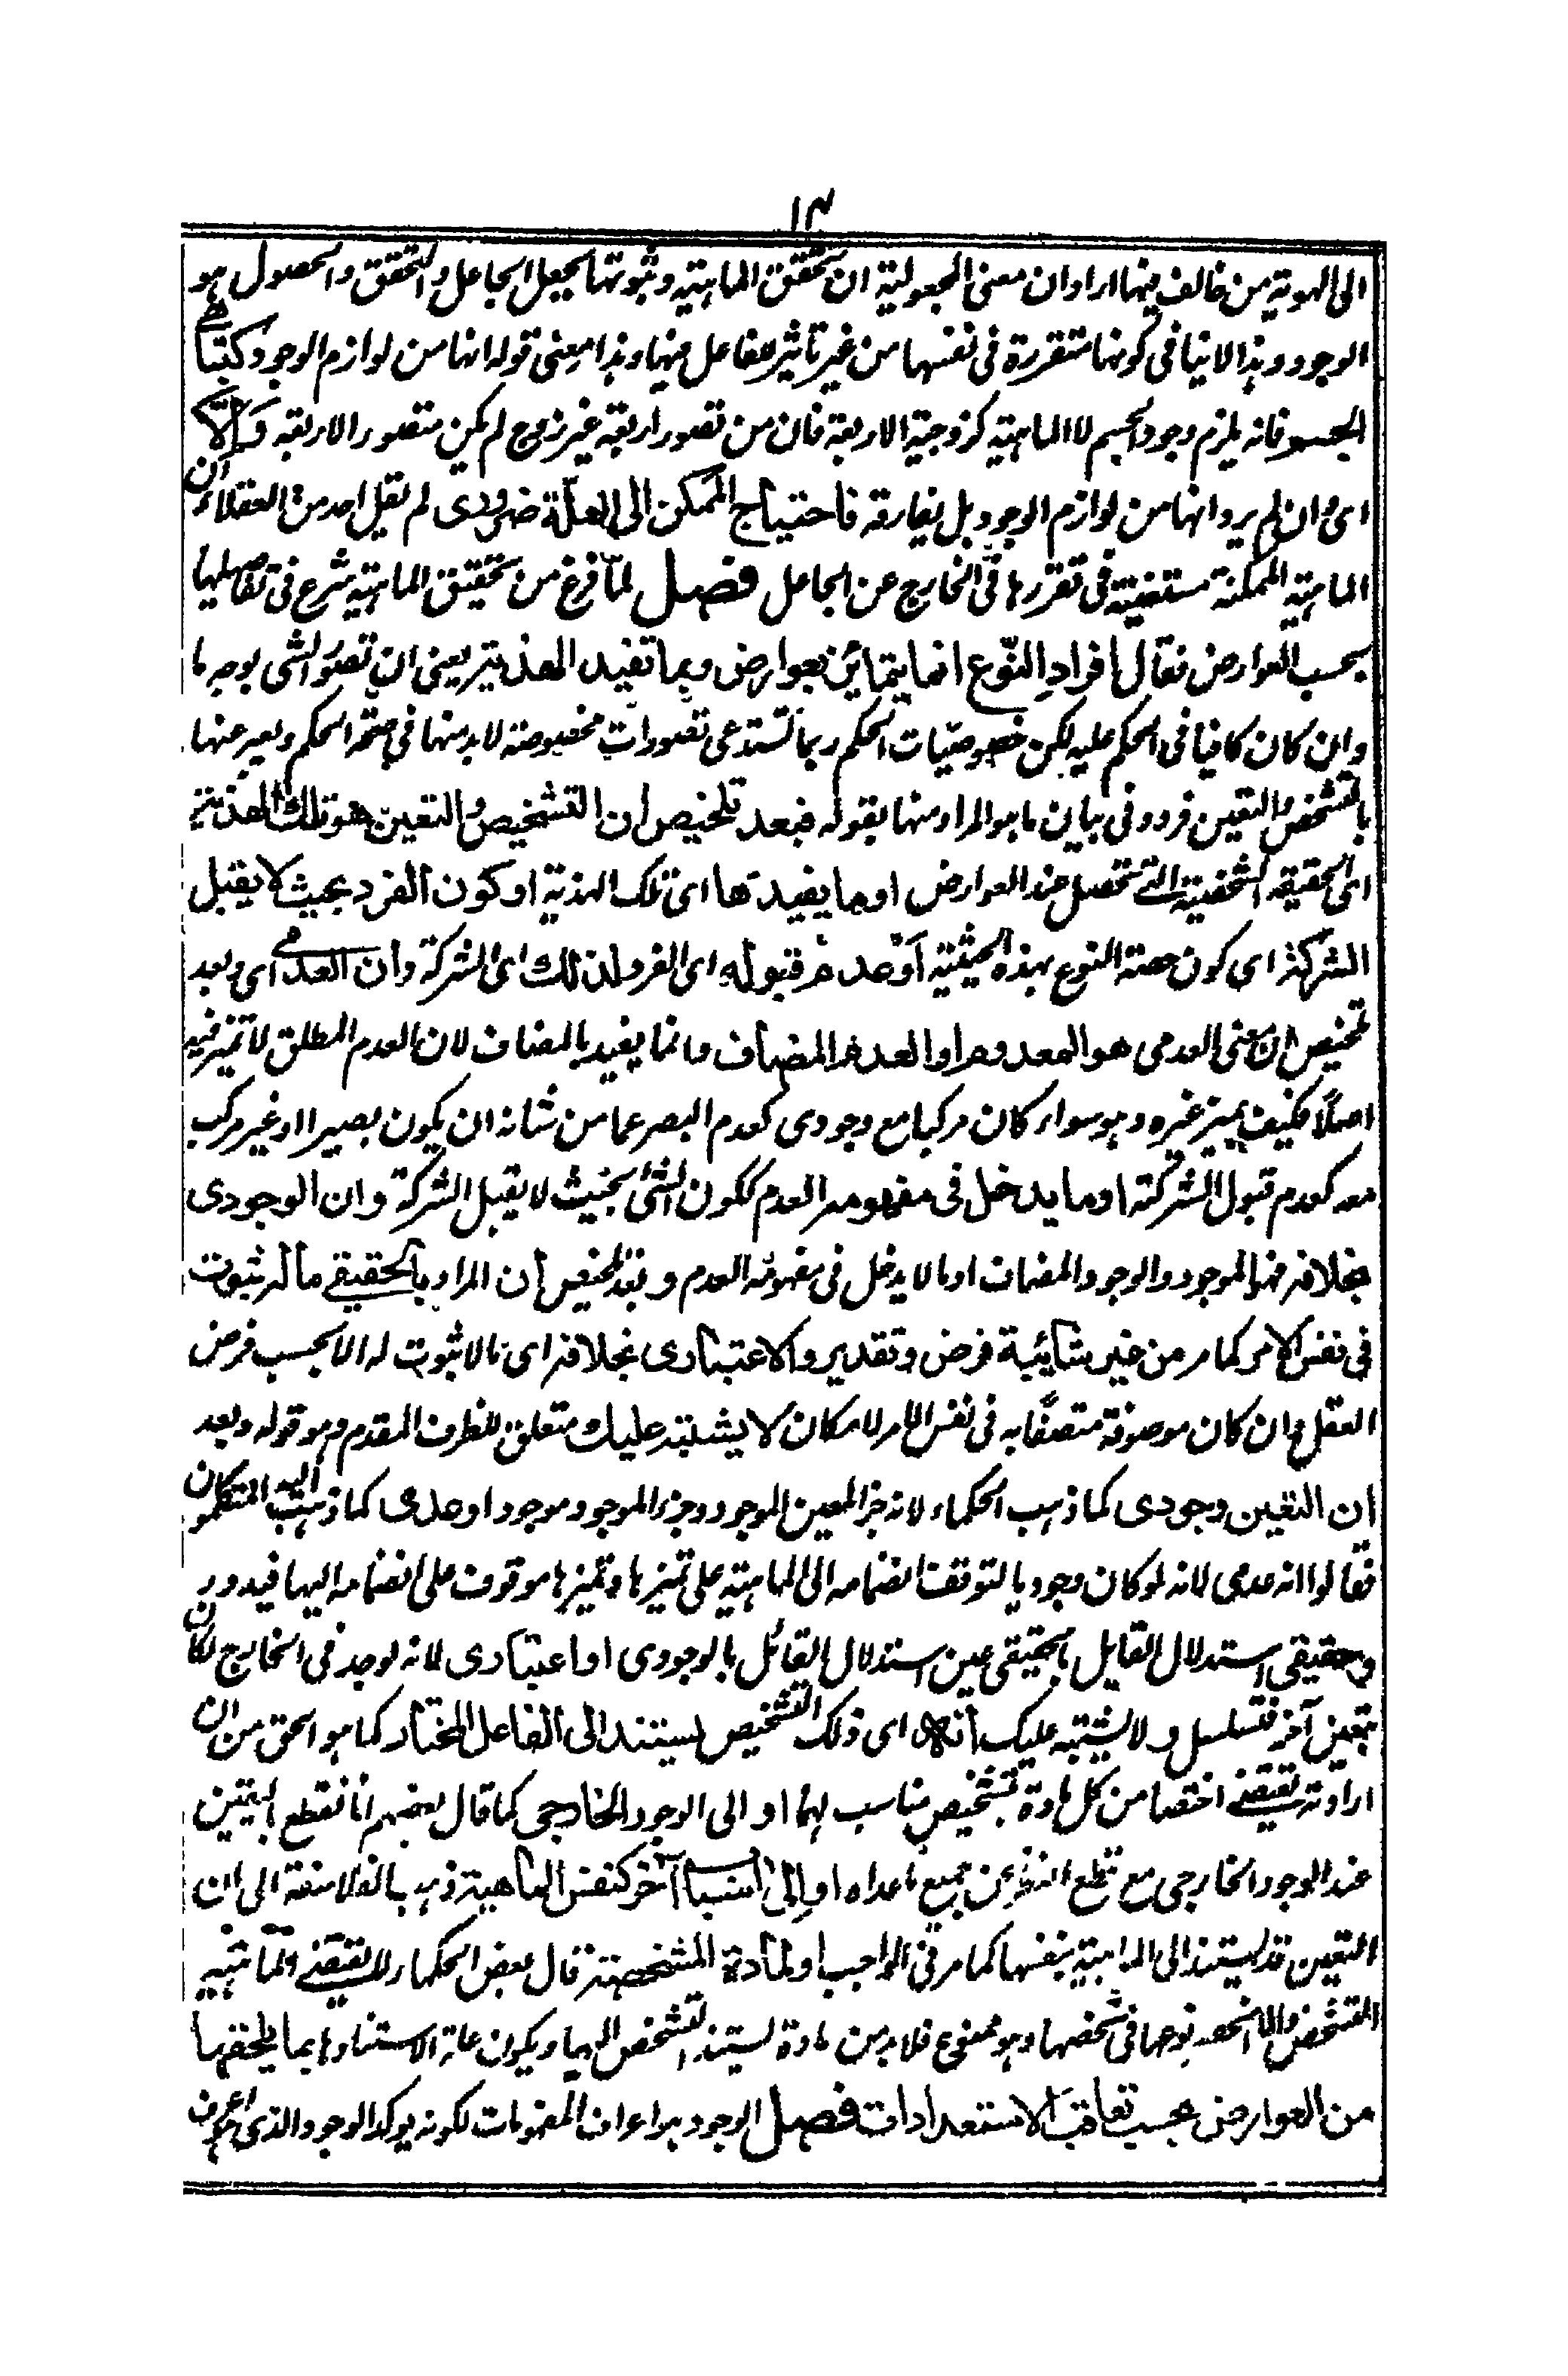 ١٣
الى الهوية من خالف فيها اراد ان معنى المجعولية ان تحقق الماهية وثبوتها بجعل الجاعل والتحقق والحصول هو
الوجود وهذا لا ينافى كونها متقررة فى نفسها من غير تاثير للفاعل فيها وهذا معنى قوله انها من لوازم الوجود كتناهى
الجسم فانه يلزم وجود الجسم لا الماهية كزوجية الاربعة فان من تصور اربعة غير زوج لم يكن متصور الاربعة والا
اى وان لم يرد انها من لوازم الوجود بل يفارقه فاحتياج الممكن الى العلة ضرورى لم يقل احد من العقلاء ان
الماهية الممكنة مستغنية فى تقررها فى الخارج عن الجاعل فصل لما فرغ من تحقيق الماهية شرع فى تفاصيلها
بحسب العوارض فقال افراد النوع انما يتمايزن بعوارض ربما تفيد الهذية يعنى ان تصور الشى بوجه ما
وان كان كافيا فى الحكم عليه لكن خصوصيات الحكم ربما تستدعى تصورات مخصوصة لا بد منها فى صحة الحكم ويعبر عنها
بالتشخص والتعين فردد فى بيان ما هو المراد منها بقوله فبعد تلخيص ان التشخيص والتعين هو تلك الهذية
اى الحقيقة الشخصية التى تحصل عند العوارض او ما يفيدها اى تلك الهذية او كون الفرد بحيث لا يقبل
الشركة اى كون حصة النوع بهذه الحيثية او عدم قبوله اى الفرد لذلك اى الشركة وان العدمى اى وبعد
تلخيص ان معنى العدمى هو المعدوم او العدم المضاف وانما يفيد بالمضاف لان العدم المطلق لا تميز فيه
اصلا فكيف يميز غيره وهو سواء كان مركبا مع وجودى كعدم البصر عما من شانه ان يكون بصيرا او غير مركب
معه كعدم قبول الشركة او ما يدخل فى مفهومه العدم ككون الشئ بحيث لا يقبل الشركة وان الوجودى
بخلافه فهو الموجود والوجود المضاف او ما لا يدخل فى مفهومه العدم وبعد تلخيص ان المراد بالحقيقى ما له ثبوت
فى نفس الامر كما مر من غير شائبة فرض وتقدير والاعتبارى بخلافه اى ما لا ثبوت له الا بحسب فرض
العقل وان كان موصوفه متصفا به فى نفس الامر لامكان لا يشتبه عليك متعلق للظرف المقدم وهو قوله وبعد
ان التعين وجودى كما ذهب اليه الحكماء لانه جزء المعين الموجود وجزء الموجود موجود او عدمى كما ذهب اليه المتكلمون
فقالوا انه عدمى لانه لو كان وجوديا لتوقف انضمامه الى الماهية على تميزها وتميزها موقوف على انضمامه اليها فيدور
وحقيقى استدلال القايل بالحقيقى عين استدلال القائل بالوجودى او اعتبارى لانه لو وجد فى الخارج لكان
بتعين آخر فتسلسل ولا يشتبه عليك انه اى ذلك التشخيص يستند الى الفاعل المختار كما هو الحق من ان
ارادته تقتضى اختصاص كل مادة بتشخيص مناسب لها او الى الوجود الخارجى كما قال بعضهم انا نقطع باليقين
عند الوجود الخارجى مع قطع النظر عن جميع ما عداه او الى اسباب آخر كنفس الماهية ذهب الفلاسفة الى ان
التعين قد يستند الى الماهية بنفسها كما مر فى الواجب او لمادة المشخصة قال بعض الحكماء لا يقتضى الماهية
التشخص والا انحصر نوعها فى شخصها وهو ممنوع فلا بد من مادة يستند التشخص اليها ويكون علة الاستناد ما بما يلحقها
من العوارض بحسب تعاقب الاستعدادات فصل الوجود هو اعراف المفهومات لكونه يوكد الوجود الذى اعرف